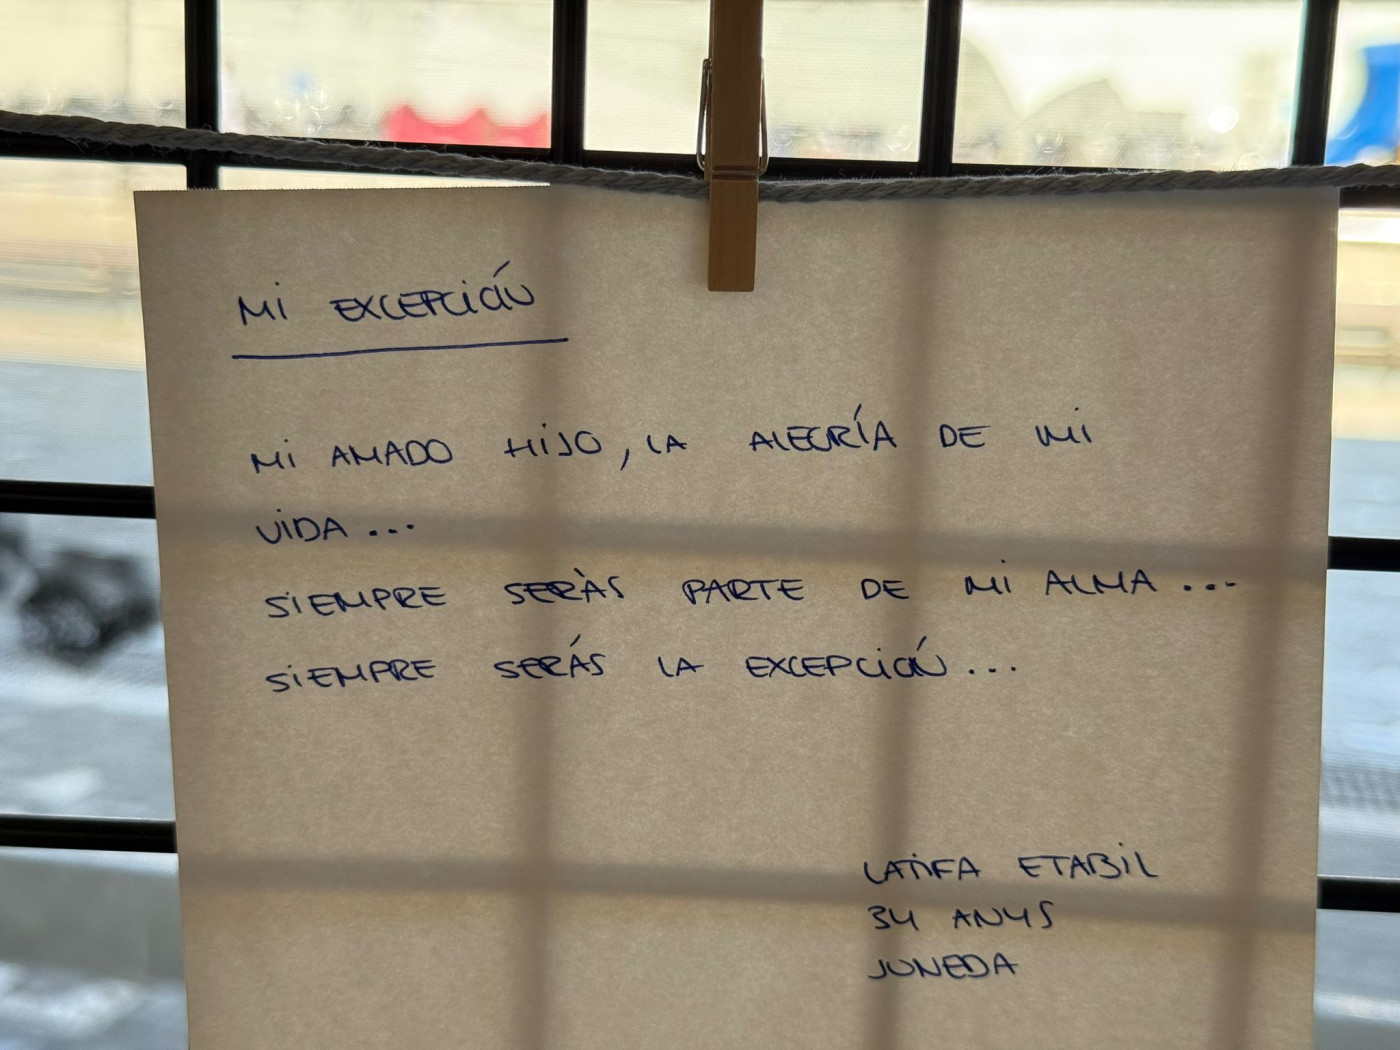 MI EXCEPCIÓN
MI AMADO HIJO, LA ALEGRÍA DE MI
VIDA...
SIEMPRE SERÀS PARTE DE MI ALMA...
SIEMPRE SERÁS LA EXCEPCIÓN...
LATIFA ETABIL
34 ANYS
JUNEDA